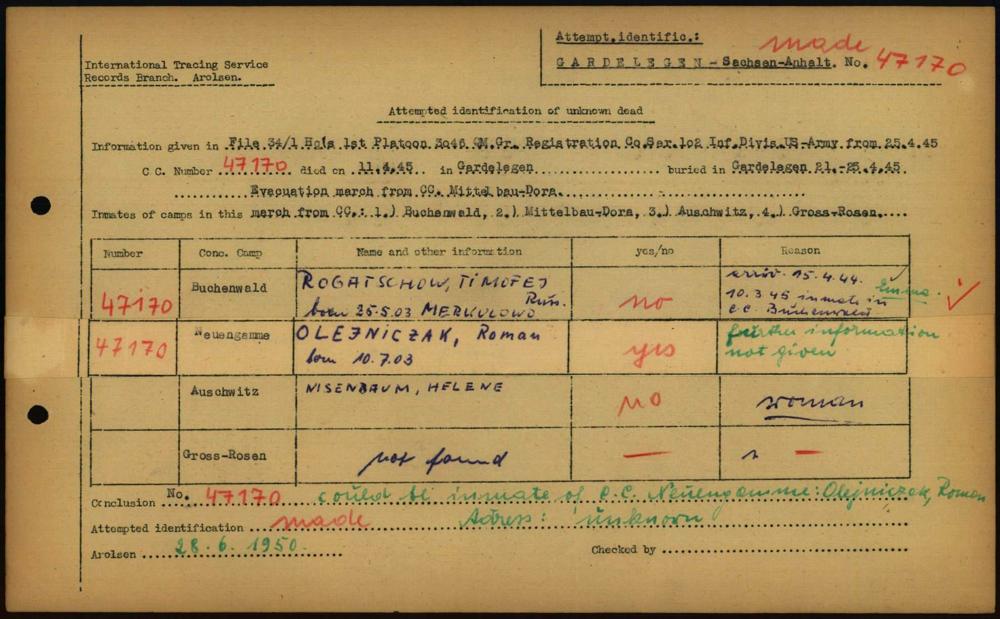 Attempt.identific.:
International Tracing Service
Records Branch. Arolsen.
made
GARDELEGEN-Sachsen-Anhalt. No. 47170
Attempted identification of unknown dead
Information given in File 34/1 Hqls 1st Platoon 3046 QM.Gr. Registration Co.Ser.102 Inf.Divis.US-Army from 25.4.45
C.C. Number 47170 died on 11.4.45 in Gardelegen buried in Gardelegen 21.-25.4.45
Evacuation march from CC. Mittelbau-Dora.
Inmates of camps in this march from CC.: 1.) Buchenwald, 2.) Mittelbau-Dora, 3.) Auschwitz, 4.) Gross-Rosen.
Number Conc. Camp Name and other information yes/no Reason
47170 Buchenwald ROGATSCHOW, TIMOFEJ Rus. born 25-5.03 MERKULOWO no arriv. 15.4.44. 10.3.45 inmate in C.C. Buchenwald
47170 Neuengamme OLEJNICZAK, Roman born 10.7.03 yes further information not given
Auschwitz NISENBAUM, HELENE no woman
Gross-Rosen not found — —
Conclusion No. 47170 could be inmate of C.C. Neuengamme: Olejniczak, Roman
Attempted identification made Adress: unknown
Arolsen 28.6.1950. Checked by